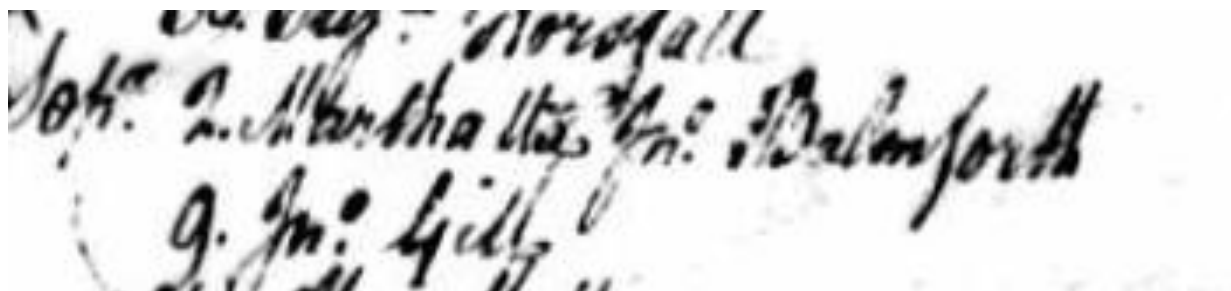 Horsfall
Sepr. 2. Martha Uxr Jno. Balmforth
9. Jno. Gill